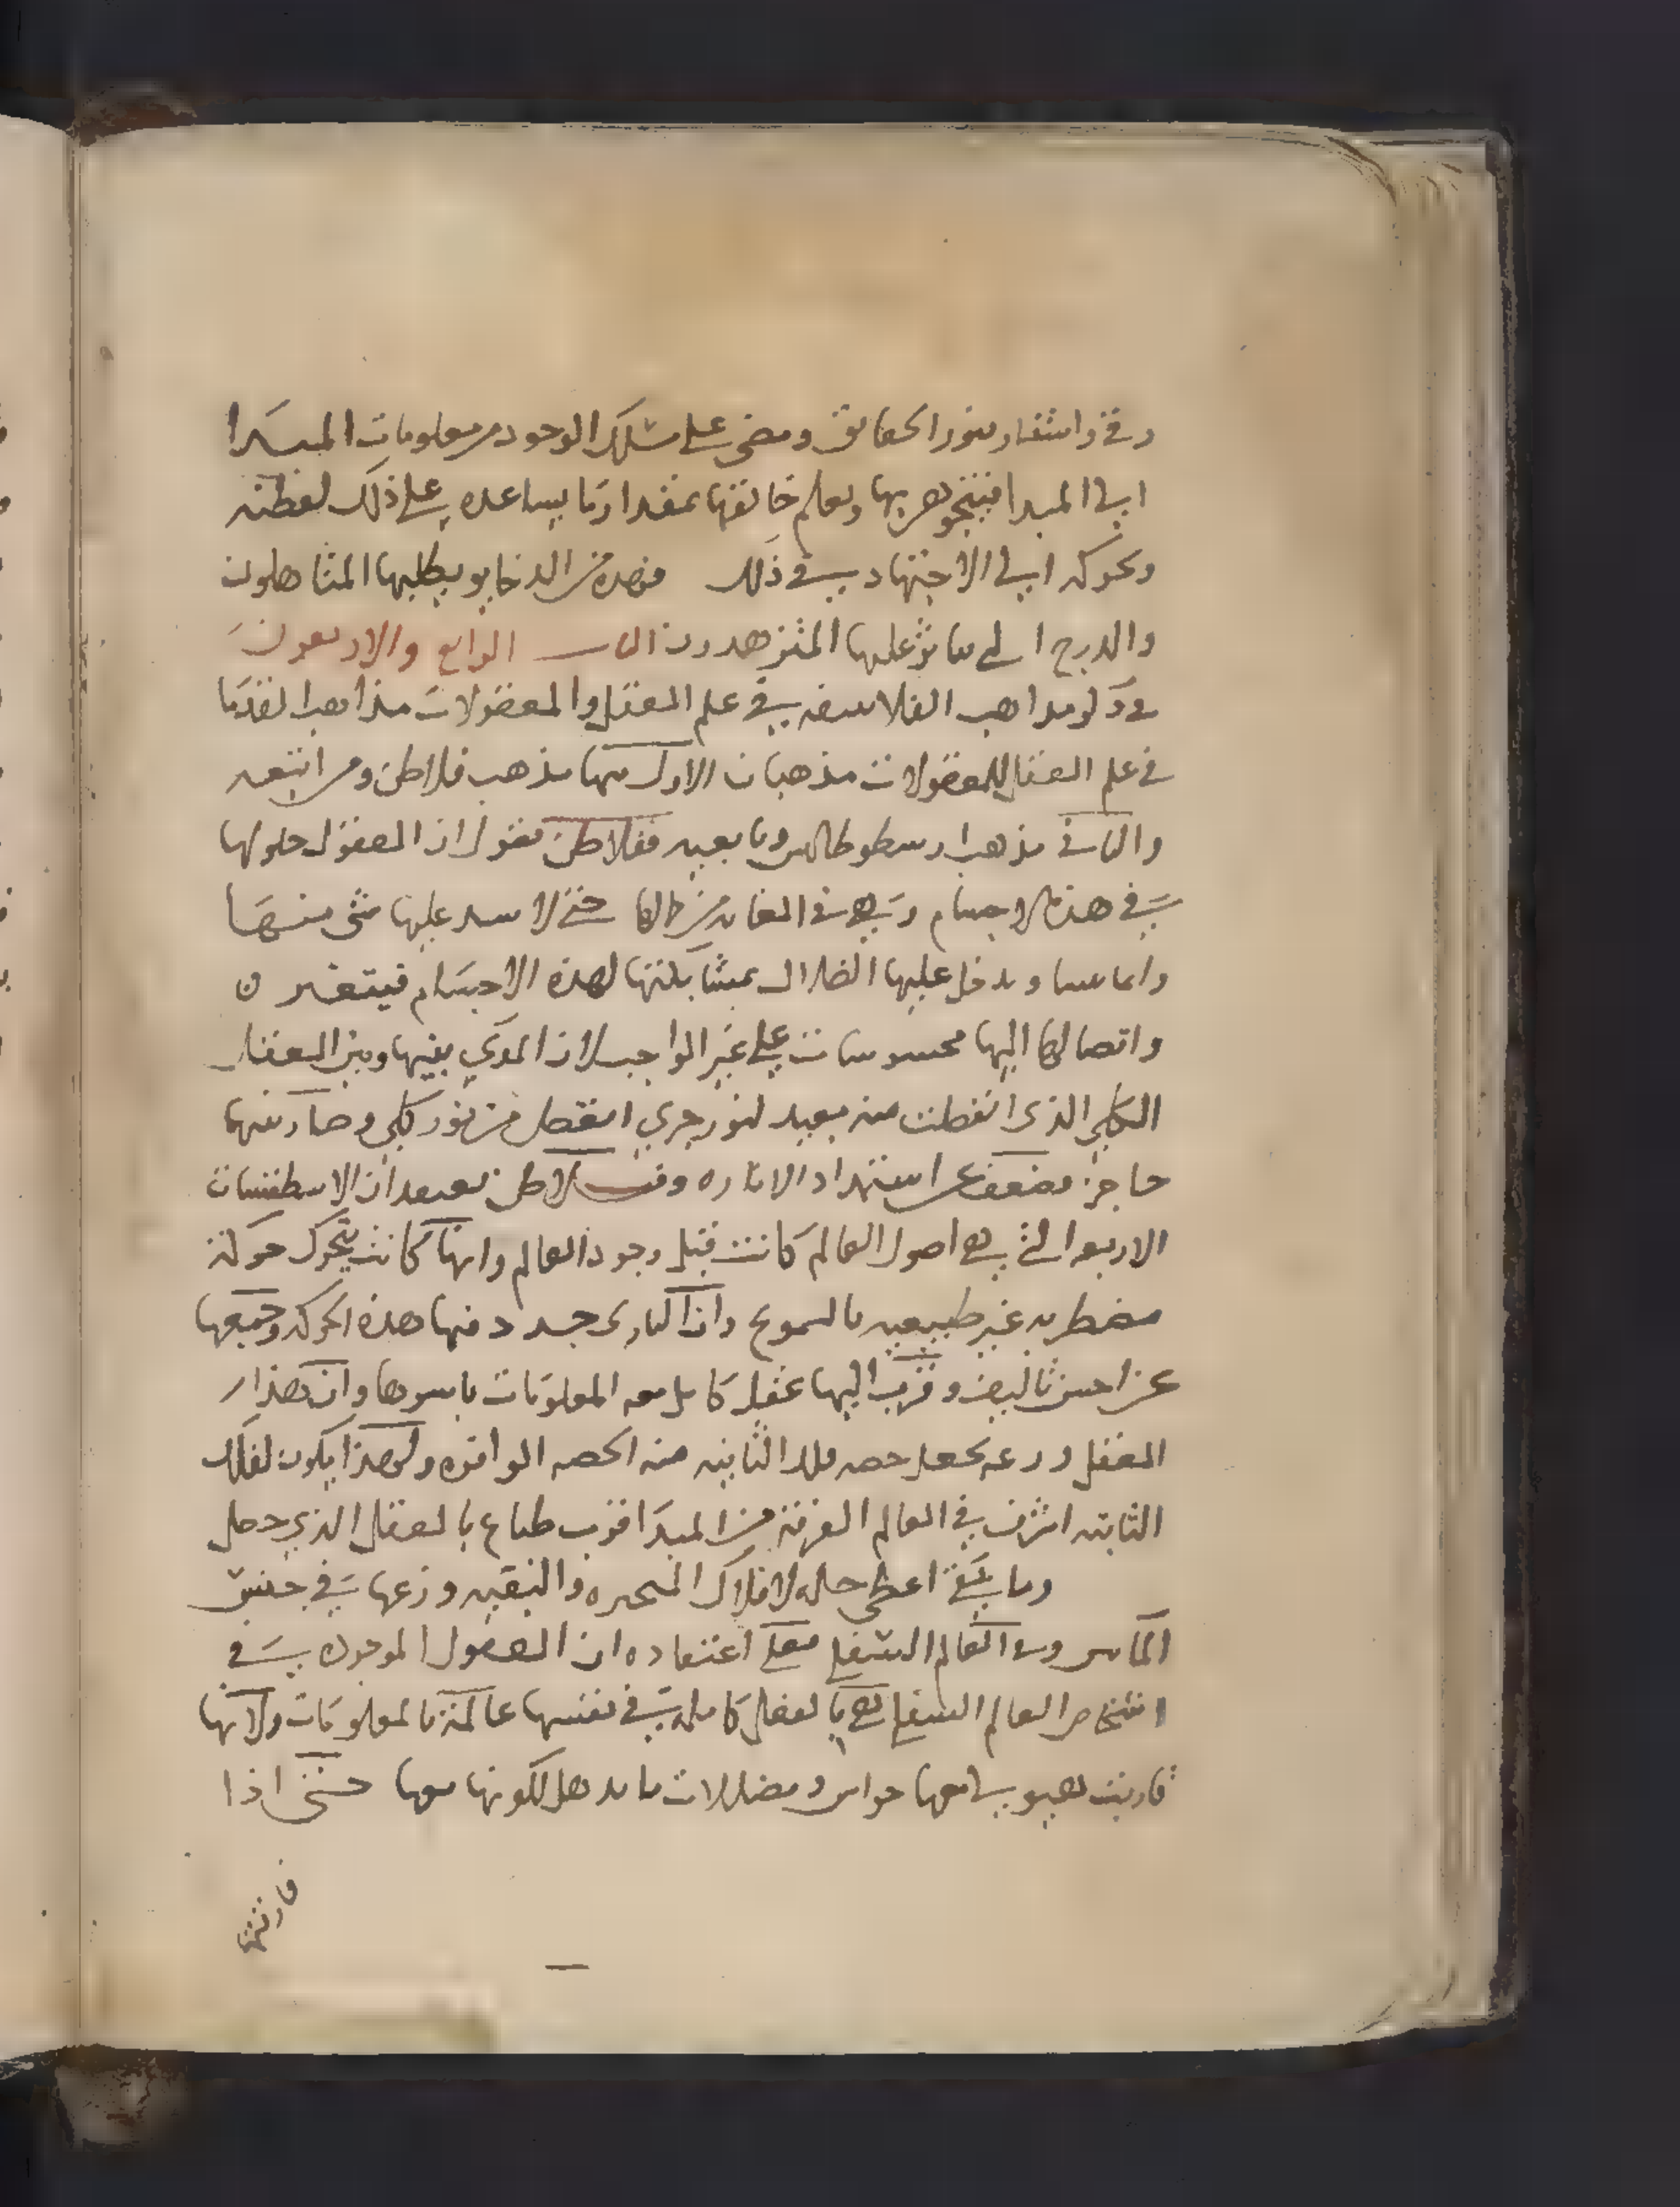 ومضى على الوجود من معلومات المبدا
الى المبدا فيتجوهر بها ويعلم خالقها بمقدار ما يساعده على ذلك لفطنه
وتحركه الى الاجتهاد في ذلك فهذه من الدخاير يطلبها المتاهلون
والدرج الى ما يوثر عليها المتزهدون الباب الرابع والاربعون
في ذكر مذاهب الفلاسفه في علم العقل والمعقولات مذاهب القدما
في علم العقل للمعقولات مذهبان الاول منها مذهب فلاطن ومن اتبعه
والثاني مذهب ارسطوطالس وتابعيه ففلاطن يقول ان العقول حلولها
في هذه الاجسام وهي في الغايه من الكمال حتى لا عليها شي منها
وانما ويدخل عليها الضلال بمشابكتها لهذه الاجسام فيتغير ن
واتصالها اليها محسوسات على غير الواجب لان المدي بينها وبين العقل
الكلي الذي انفصلت منه بعيد لنور جزي انفصل من نور كلي وصار بينها
حاجز فضعف عن استمداد الاناره وفلاطن يعتقد ان الاسطقسات
الاربعه التي هي اصول العالم كانت قبل وجود العالم وانها كانت تتحرك حركة
مضطربه غير طبيعيه بالتموج وان الباري جدد فيها هذه الحركه وجمعها
عن احسن تاليف وقرب اليها عقل كامل معه المعلومات باسرها وان هذا
العقل وزعه فجعل حصه فلك الثابته منه الحصه الوافره ولهذا يكون لفلك
الثابته اشرف في العالم لقربه من المبدا قرب طباع بالعقل الذي حصل
وما بقي اعطى حاله لافلاك المتحيره والبقيه وزعها في جنس
الناس وفي العالم السفلي فعلى اعتقاده ان العقول الموجوده في
اشخاص العالم السفلي هي بالعقل كامله في نفسها عالمة بالمعلومات ولانها
قارنت هيولي معها حواس وضلالات ما يذهل لكونها معها حتى اذا
فارقتها